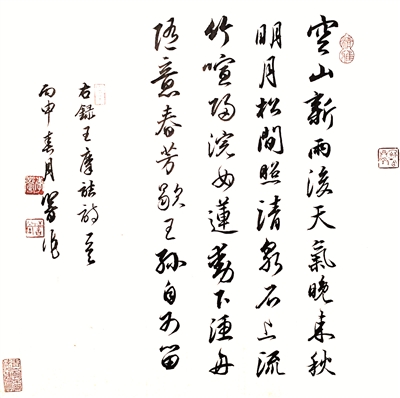 空山新雨後天氣晚來秋
明月松間照清泉石上流
竹喧歸浣女蓮動下漁舟
隨意春芳歇王孫自可留
右錄王摩詰詩一首
丙申春月